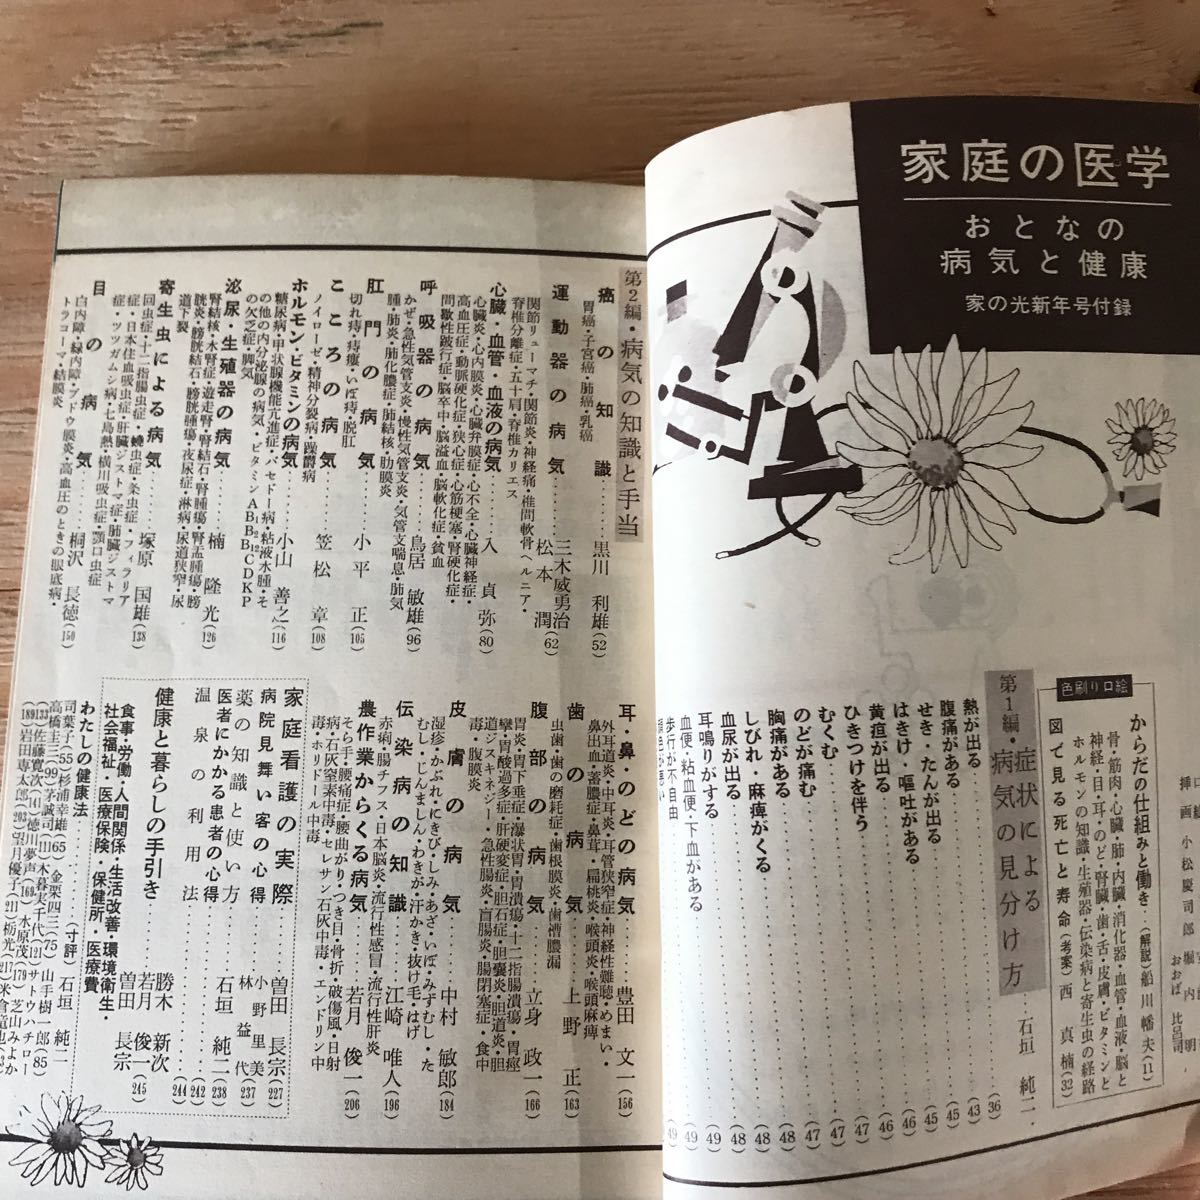 家庭の医学
おとなの
病気と健康
家の光新年号付録
色刷り口絵
からだの仕組みと働き‥(解説)船川幡夫(11)
骨・筋肉・心臓・肺・内臓・消化器・血管・血液・脳と
神経・目・耳・のど・腎臓・歯・舌・皮膚・ビタミンと
ホルモンの知識・生殖器・伝染病と寄生虫の経路
図で見る死亡と寿命(考案)西 真楠(32)
第1編・症状による
病気の見分け方……石垣純二…
熱が出る(36)
腹痛がある(43)
せき・たんが出る(45)
はきけ・嘔吐がある(45)
黄疸が出る(46)
ひきつけを伴う(46)
むくむ(47)
のどが痛む(47)
胸痛がある(48)
しびれ・麻痺がくる(48)
血尿が出る(48)
耳鳴りがする(49)
血便・粘血便・下血がある(49)
歩行が不自由(49)
第2編・病気の知識と手当
癌の知識……黒川利雄(52)
胃癌・子宮癌・肺癌・乳癌
運動器の病気……三木威勇治
松本 潤(62)
関節リューマチ・関節炎・神経痛・椎間軟骨ヘルニア・
脊椎分離症・五十肩・脊椎カリエス
心臓・血管・血液の病気……入 貞弥(80)
心臓炎・心内膜炎・心臓弁膜症・心不全・心臓神経症・
高血圧症・動脈硬化症・狭心症・心筋梗塞・腎硬化症・
間歇性跛行症・脳卒中・脳溢血・脳軟化症・貧血
呼吸器の病気……鳥居敏雄(96)
かぜ・急性気管支炎・慢性気管支炎・気管支喘息・肺気
腫・肺炎・肺化膿症・肺結核・肋膜炎
肛門の病気……小平 正(105)
切れ痔・痔瘻・いぼ痔・脱肛
こころの病気……笠松 章(108)
ノイローゼ・精神分裂病・躁鬱病
ホルモン・ビタミンの病気……小山善之(116)
糖尿病・甲状腺機能亢進症・バセドー病・粘液水腫・そ
の他の内分泌腺の病気、ビタミンAB₁B₂B₁₂CDKP
の欠乏症・脚気
泌尿・生殖器の病気……楠 隆光(126)
腎結核・水腎症・遊走腎・腎結石・腎腫瘍・腎盂腫瘍・膀
胱炎・膀胱結石・膀胱腫瘍・夜尿症・淋病・尿道狭窄・尿
道下裂
寄生虫による病気……塚原国雄(138)
回虫症・十二指腸虫症・蟯虫症・条虫症・フィラリア
症・日本住血吸虫症・肝臓ジストマ症・肺臓ジストマ
症・ツツガムシ病・七島熱・横川吸虫症・顎口虫症
目の病気……桐沢長徳(150)
白内障・緑内障・ブドウ膜炎・高血圧のときの眼底病・
トラコーマ・結膜炎
耳・鼻・のどの病気……豊田文一(156)
外耳道炎・中耳炎・耳管狭窄症・神経性難聴・めまい・
鼻出血・蓄膿症・鼻茸・扁桃炎・喉頭炎・喉頭麻痺
歯の病気……上野 正(163)
虫歯・歯の磨耗症・歯根膜炎・歯槽膿漏
腹部の病気……立身政一(166)
胃炎・胃下垂・瀑状胃・胃潰瘍・十二指腸潰瘍・胃痙
攣・胃酸過多症・肝硬変症・胆石症・胆嚢炎・胆道炎・胆
道ジスキネジー・急性腸炎・盲腸炎・腸閉塞症・食中
毒・腹膜炎
皮膚の病気……中村敏郎(184)
湿疹・かぶれ・にきび・しみ・あざ・いぼ・みずむし・た
むし・じんましん・わきが・汗かき・抜け毛・はげ
伝染病の知識……江崎唯人(196)
赤痢・腸チフス・日本脳炎・流行性感冒・流行性肝炎
農作業からくる病気……若月俊一(206)
そら手・腰痛症・腰曲がり・つき目・骨折・破傷風・日射
病・石灰窒素中毒・セレサン石灰中毒・エンドリン中
毒・ホリドール中毒
家庭看護の実際……曽田長宗(227)
病院見舞い客の心得……小野里美
薬の知識と使い方……林 益代(237)
医者にかかる患者の心得……石垣純二(238)
温泉の利用法(242)
(244)
健康と暮らしの手引き……勝木新次
若月俊一
曽田長宗(245)
食事・労働・人間関係・生活改善・環境衛生・
社会福祉・医療保険・保健所・医療費
わたしの健康法……(寸評)石垣純二
司葉子(55)杉浦幸雄(65)金栗四三(75)山手樹一郎(85)
高橋圭三(99)茅誠司(111)木暮実千代(121)サトウハチロー
(133)佐藤寛次(141)徳川夢声(169)水原茂(179)芝山みよか
(189)岩田専太郎(203)望月優子(211)栃光